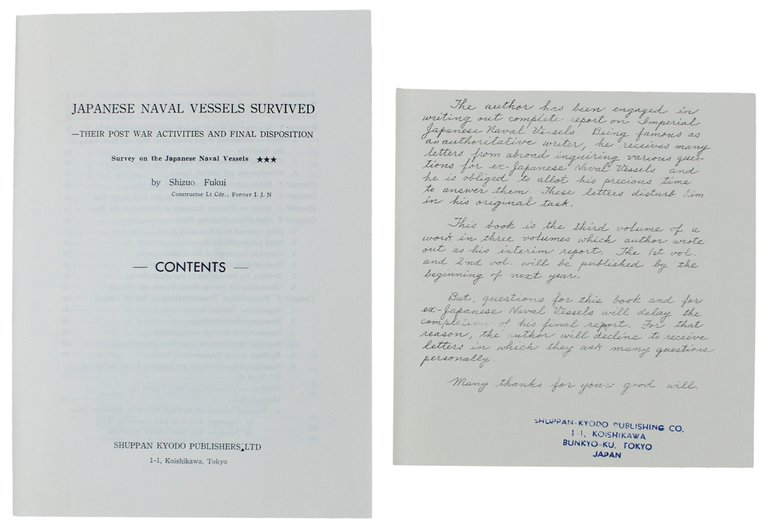 JAPANESE NAVAL VESSELS SURVIVED
—THEIR POST WAR ACTIVITIES AND FINAL DISPOSITION
Survey on the Japanese Naval Vessels ★★★
by Shizuo Fukui
Constructor Lt Cdr., Former I. J. N
— CONTENTS —
SHUPPAN KYODO PUBLISHERS, LTD
1-1, Koishikawa, Tokyo
The author has been engaged in
writing out complete report on Imperial
Japanese Naval Vessels. Being famous as
an authoritative writer, he receives many
letters from abroad inquiring various ques-
tions for ex-Japanese Naval Vessels and
he is obliged to allot his precious time
to answer them. These letters disturb him
in his original task.
This book is the third volume of a
work in three volumes which author wrote
out as his interim report. The 1st vol.
and 2nd vol. will be published by the
beginning of next year.
But, questions for this book and for
ex-Japanese Naval Vessels will delay the
completion of his final report. For that
reason, the author will decline to receive
letters in which they ask many questions
personally.
Many thanks for your good will.
SHUPPAN-KYODO PUBLISHING CO.
1-1, KOISHIKAWA
BUNKYO-KU, TOKYO
JAPAN